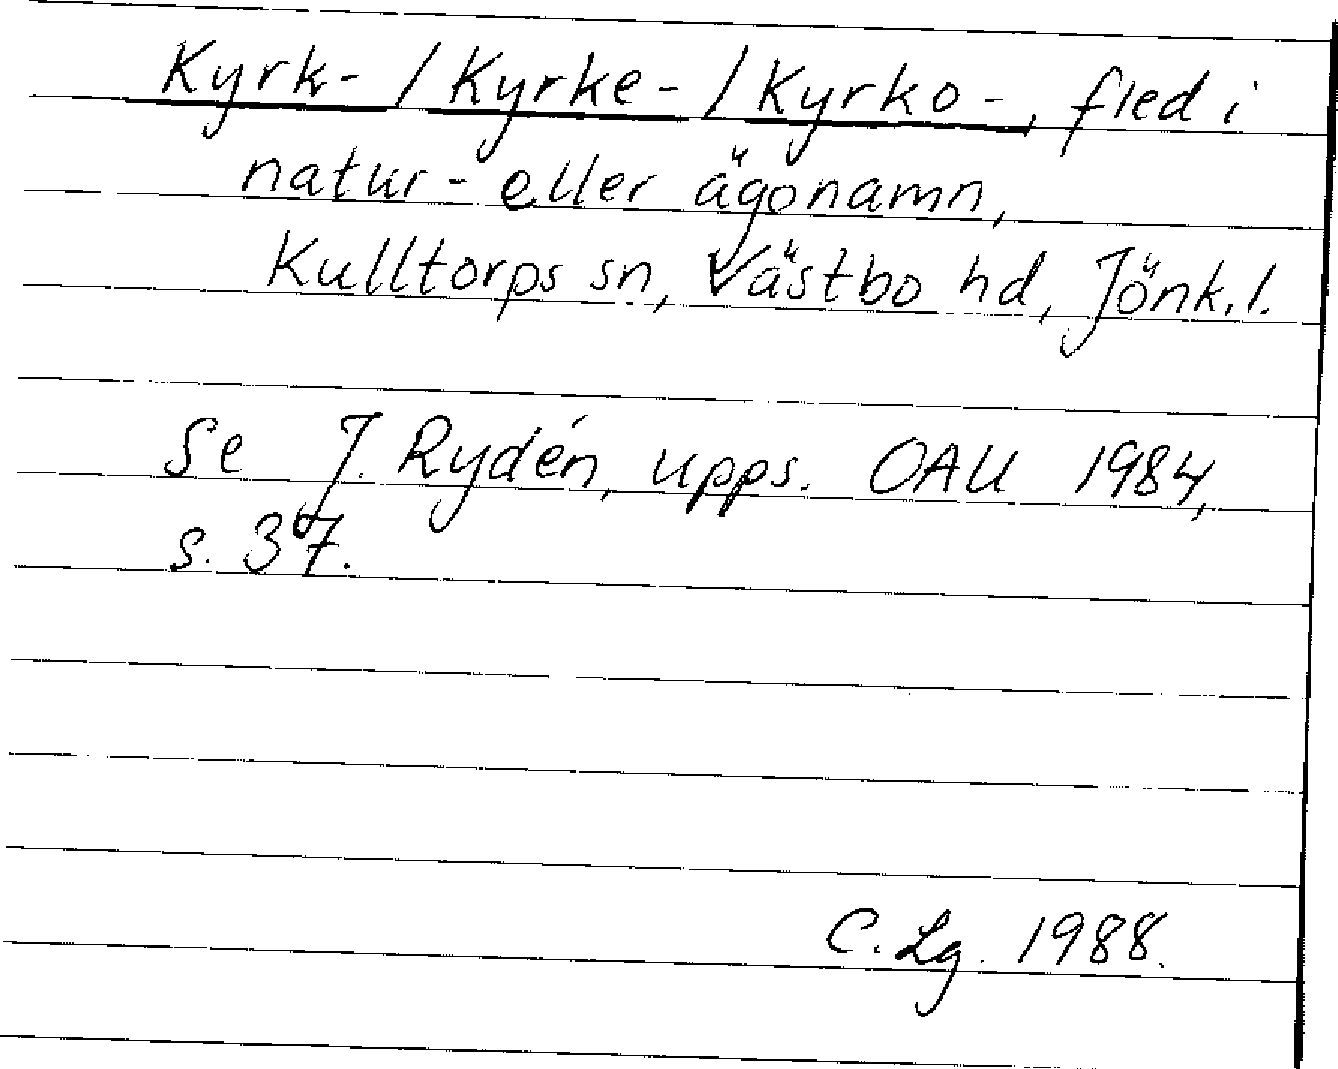 Kyrk- / Kyrke- / Kyrko-, fled i
natur- eller ägonamn,
Kulltorps sn, Västbo hd, Jönk. l.
Se J. Rydén, upps. OAU 1984,
s. 37.
C. Lg. 1988.